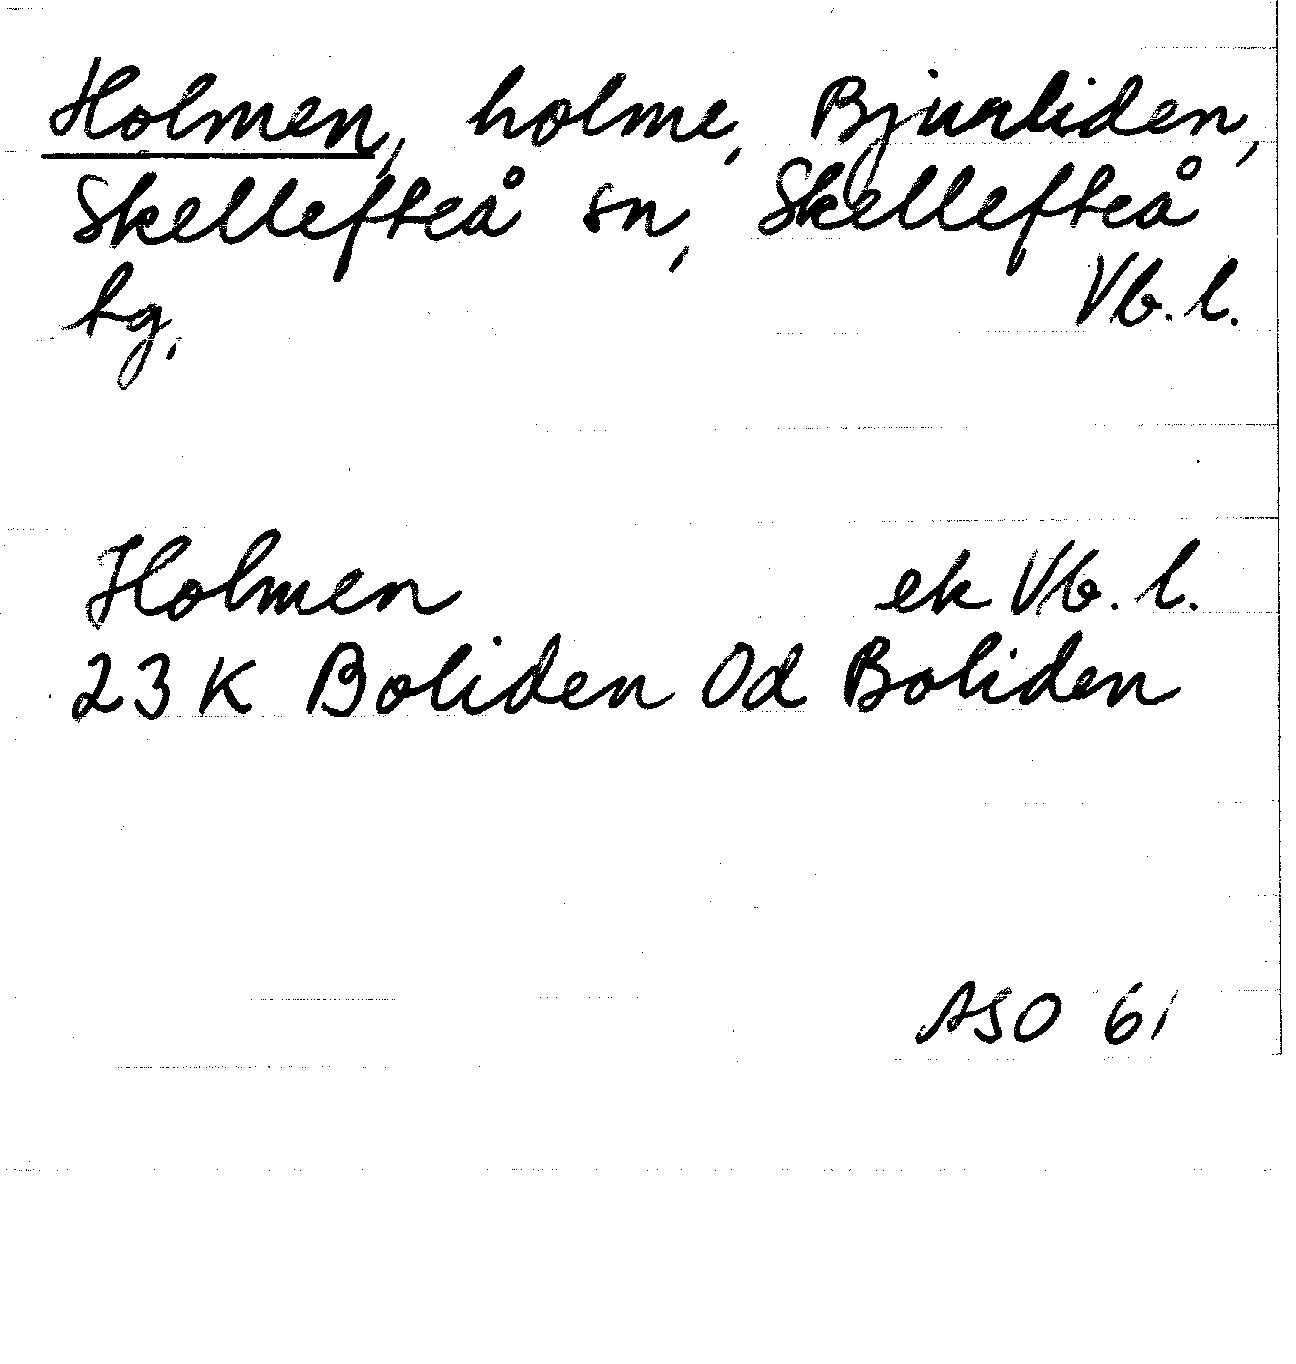 Holmen, holme, Bjurliden,
Skellefteå sn, Skellefteå
tg, Vb. l.
Holmen ek Vb. l.
23 K Boliden Od Boliden
ASO 61